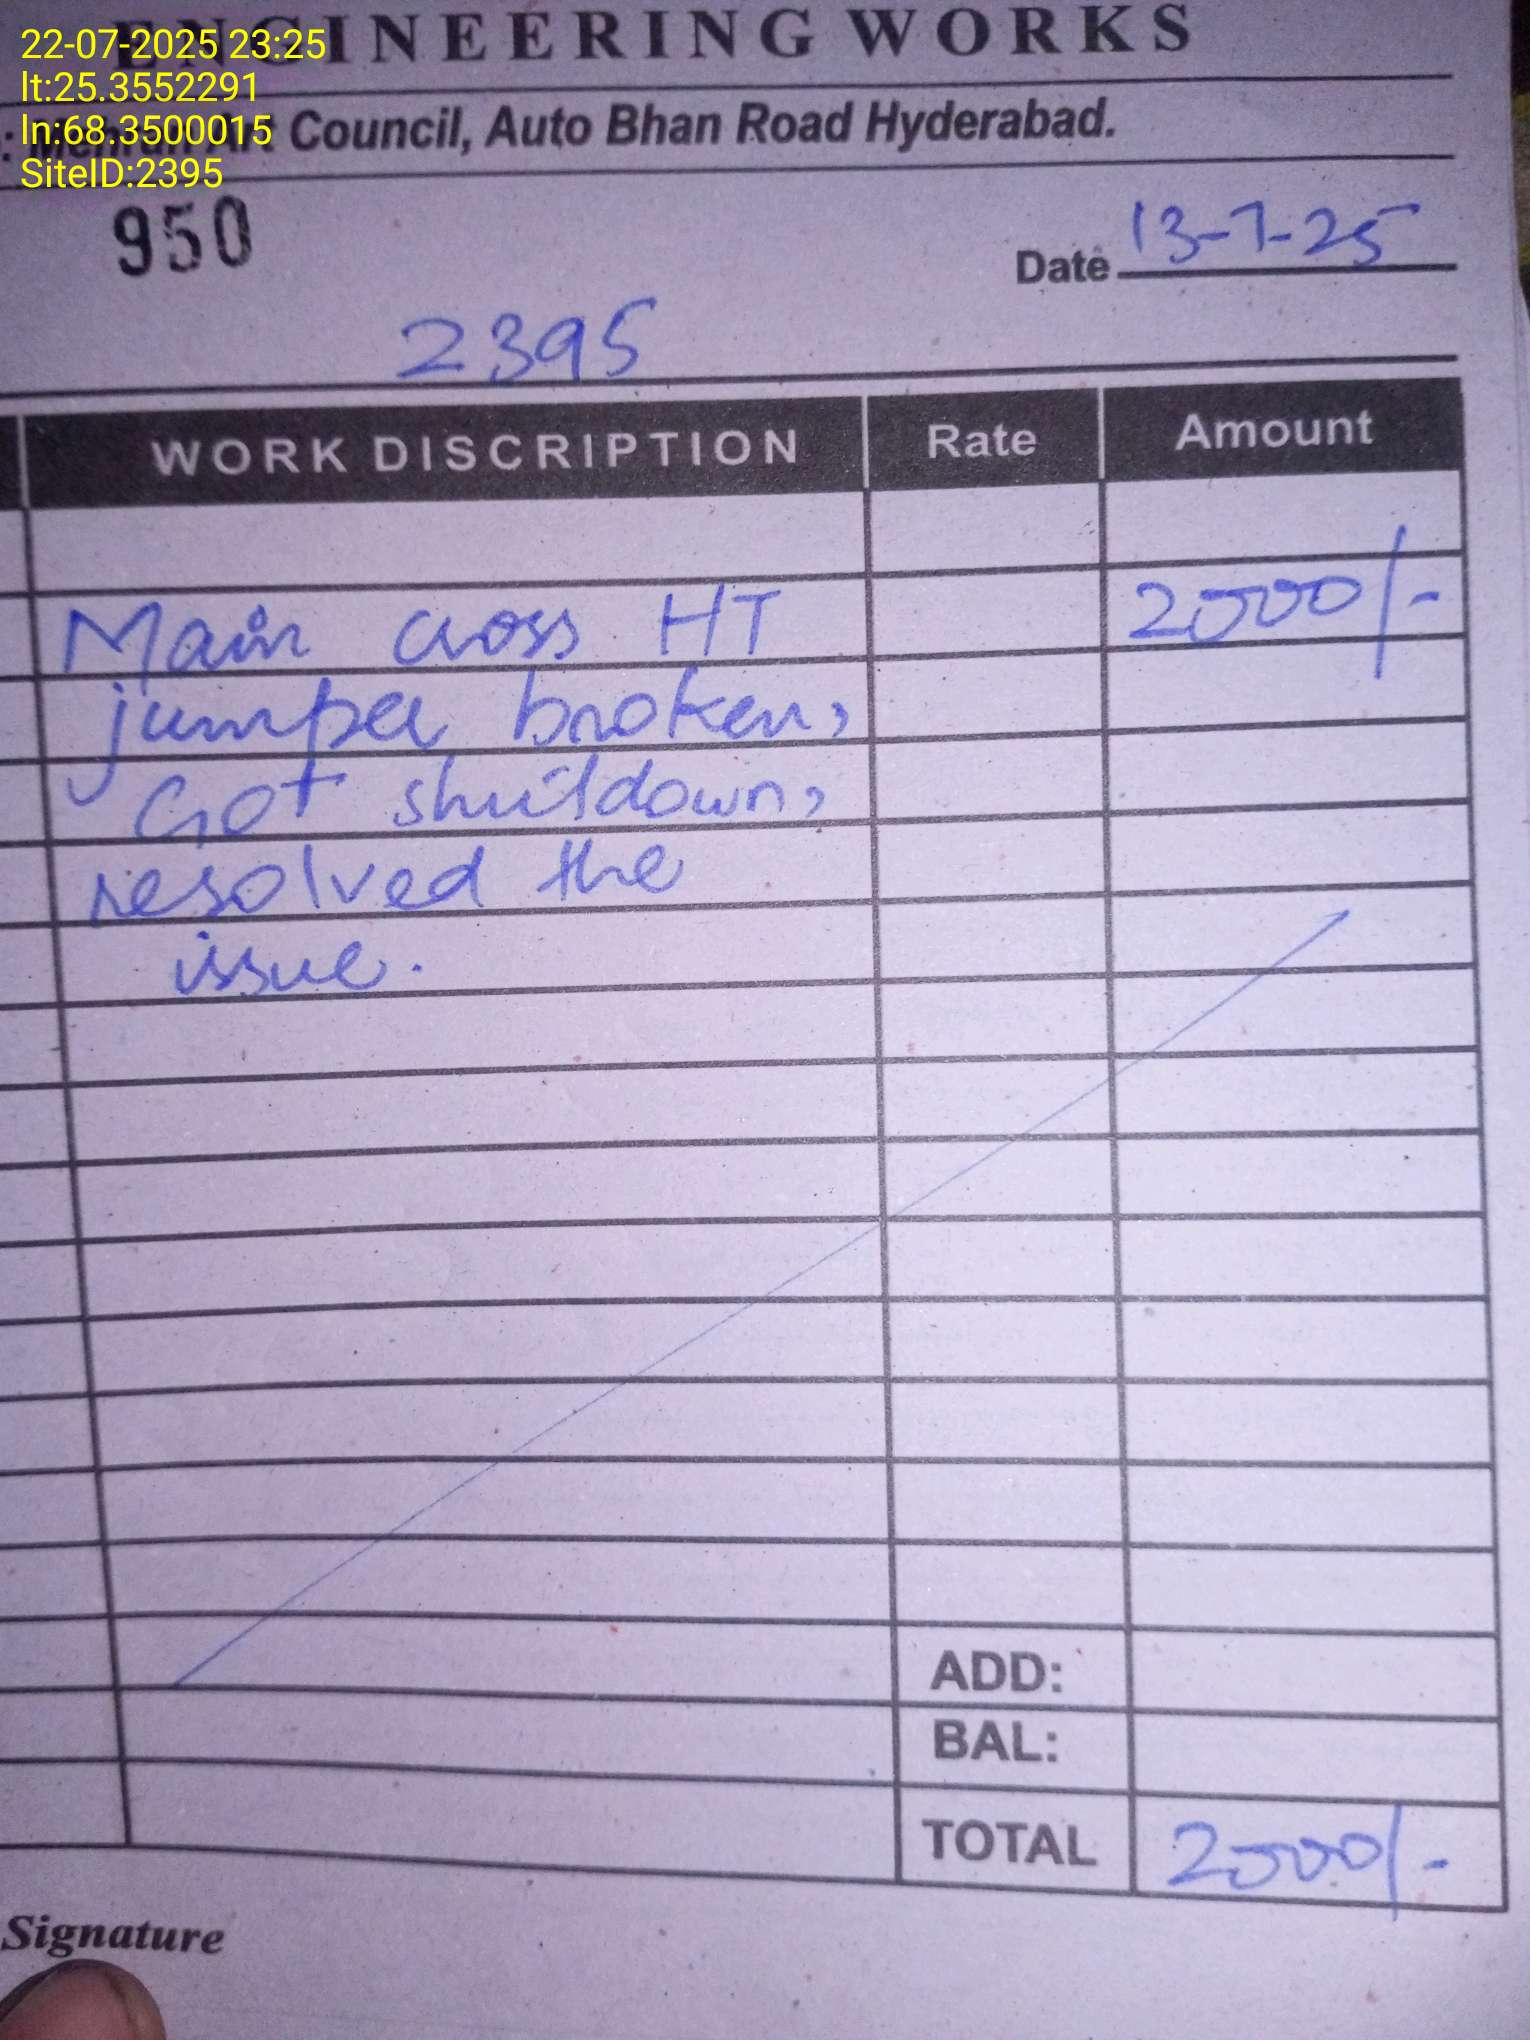 ENGINEERING WORKS
22-07-2025 23:25
lt:25.3552291
ln:68.3500015
SiteID:2395
Council, Auto Bhan Road Hyderabad.
950
Date 13-7-25
2395
WORK DISCRIPTION Rate Amount
Main cross HT 2000/-
jumper broken,
Got shutdown,
resolved the
issue.
ADD:
BAL:
TOTAL 2000/-
Signature